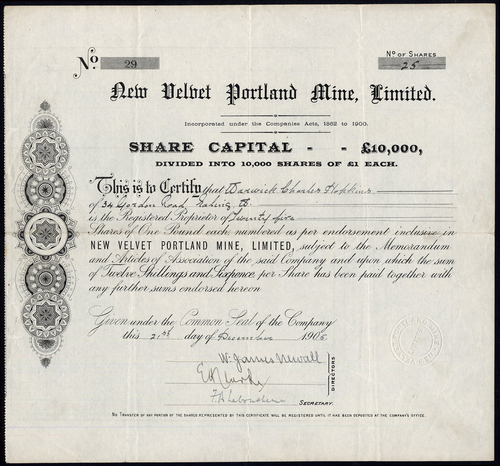 No. 29
No OF SHARES
25
New Velvet Portland Mine, Limited.
Incorporated under the Companies Acts, 1862 to 1900.
SHARE CAPITAL - - £10,000,
DIVIDED INTO 10,000 SHARES OF £1 EACH.
This is to Certify that Warwick Charles Hopkins
of 34 Gordon Road Ealing W.
is the Registered Proprietor of Twenty five
Shares of One Pound each numbered as per endorsement inclusive in
NEW VELVET PORTLAND MINE, LIMITED, subject to the Memorandum
and Articles of Association of the said Company and upon which the sum
of Twelve Shillings and Sixpence per Share has been paid together with
any further sums endorsed hereon
Given under the Common Seal of the Company
this 21st day of December 1905
W. James Newall
DIRECTORS
SECRETARY.
NO TRANSFER OF ANY PORTION OF THE SHARES REPRESENTED BY THIS CERTIFICATE WILL BE REGISTERED UNTIL IT HAS BEEN DEPOSITED AT THE COMPANY'S OFFICE.